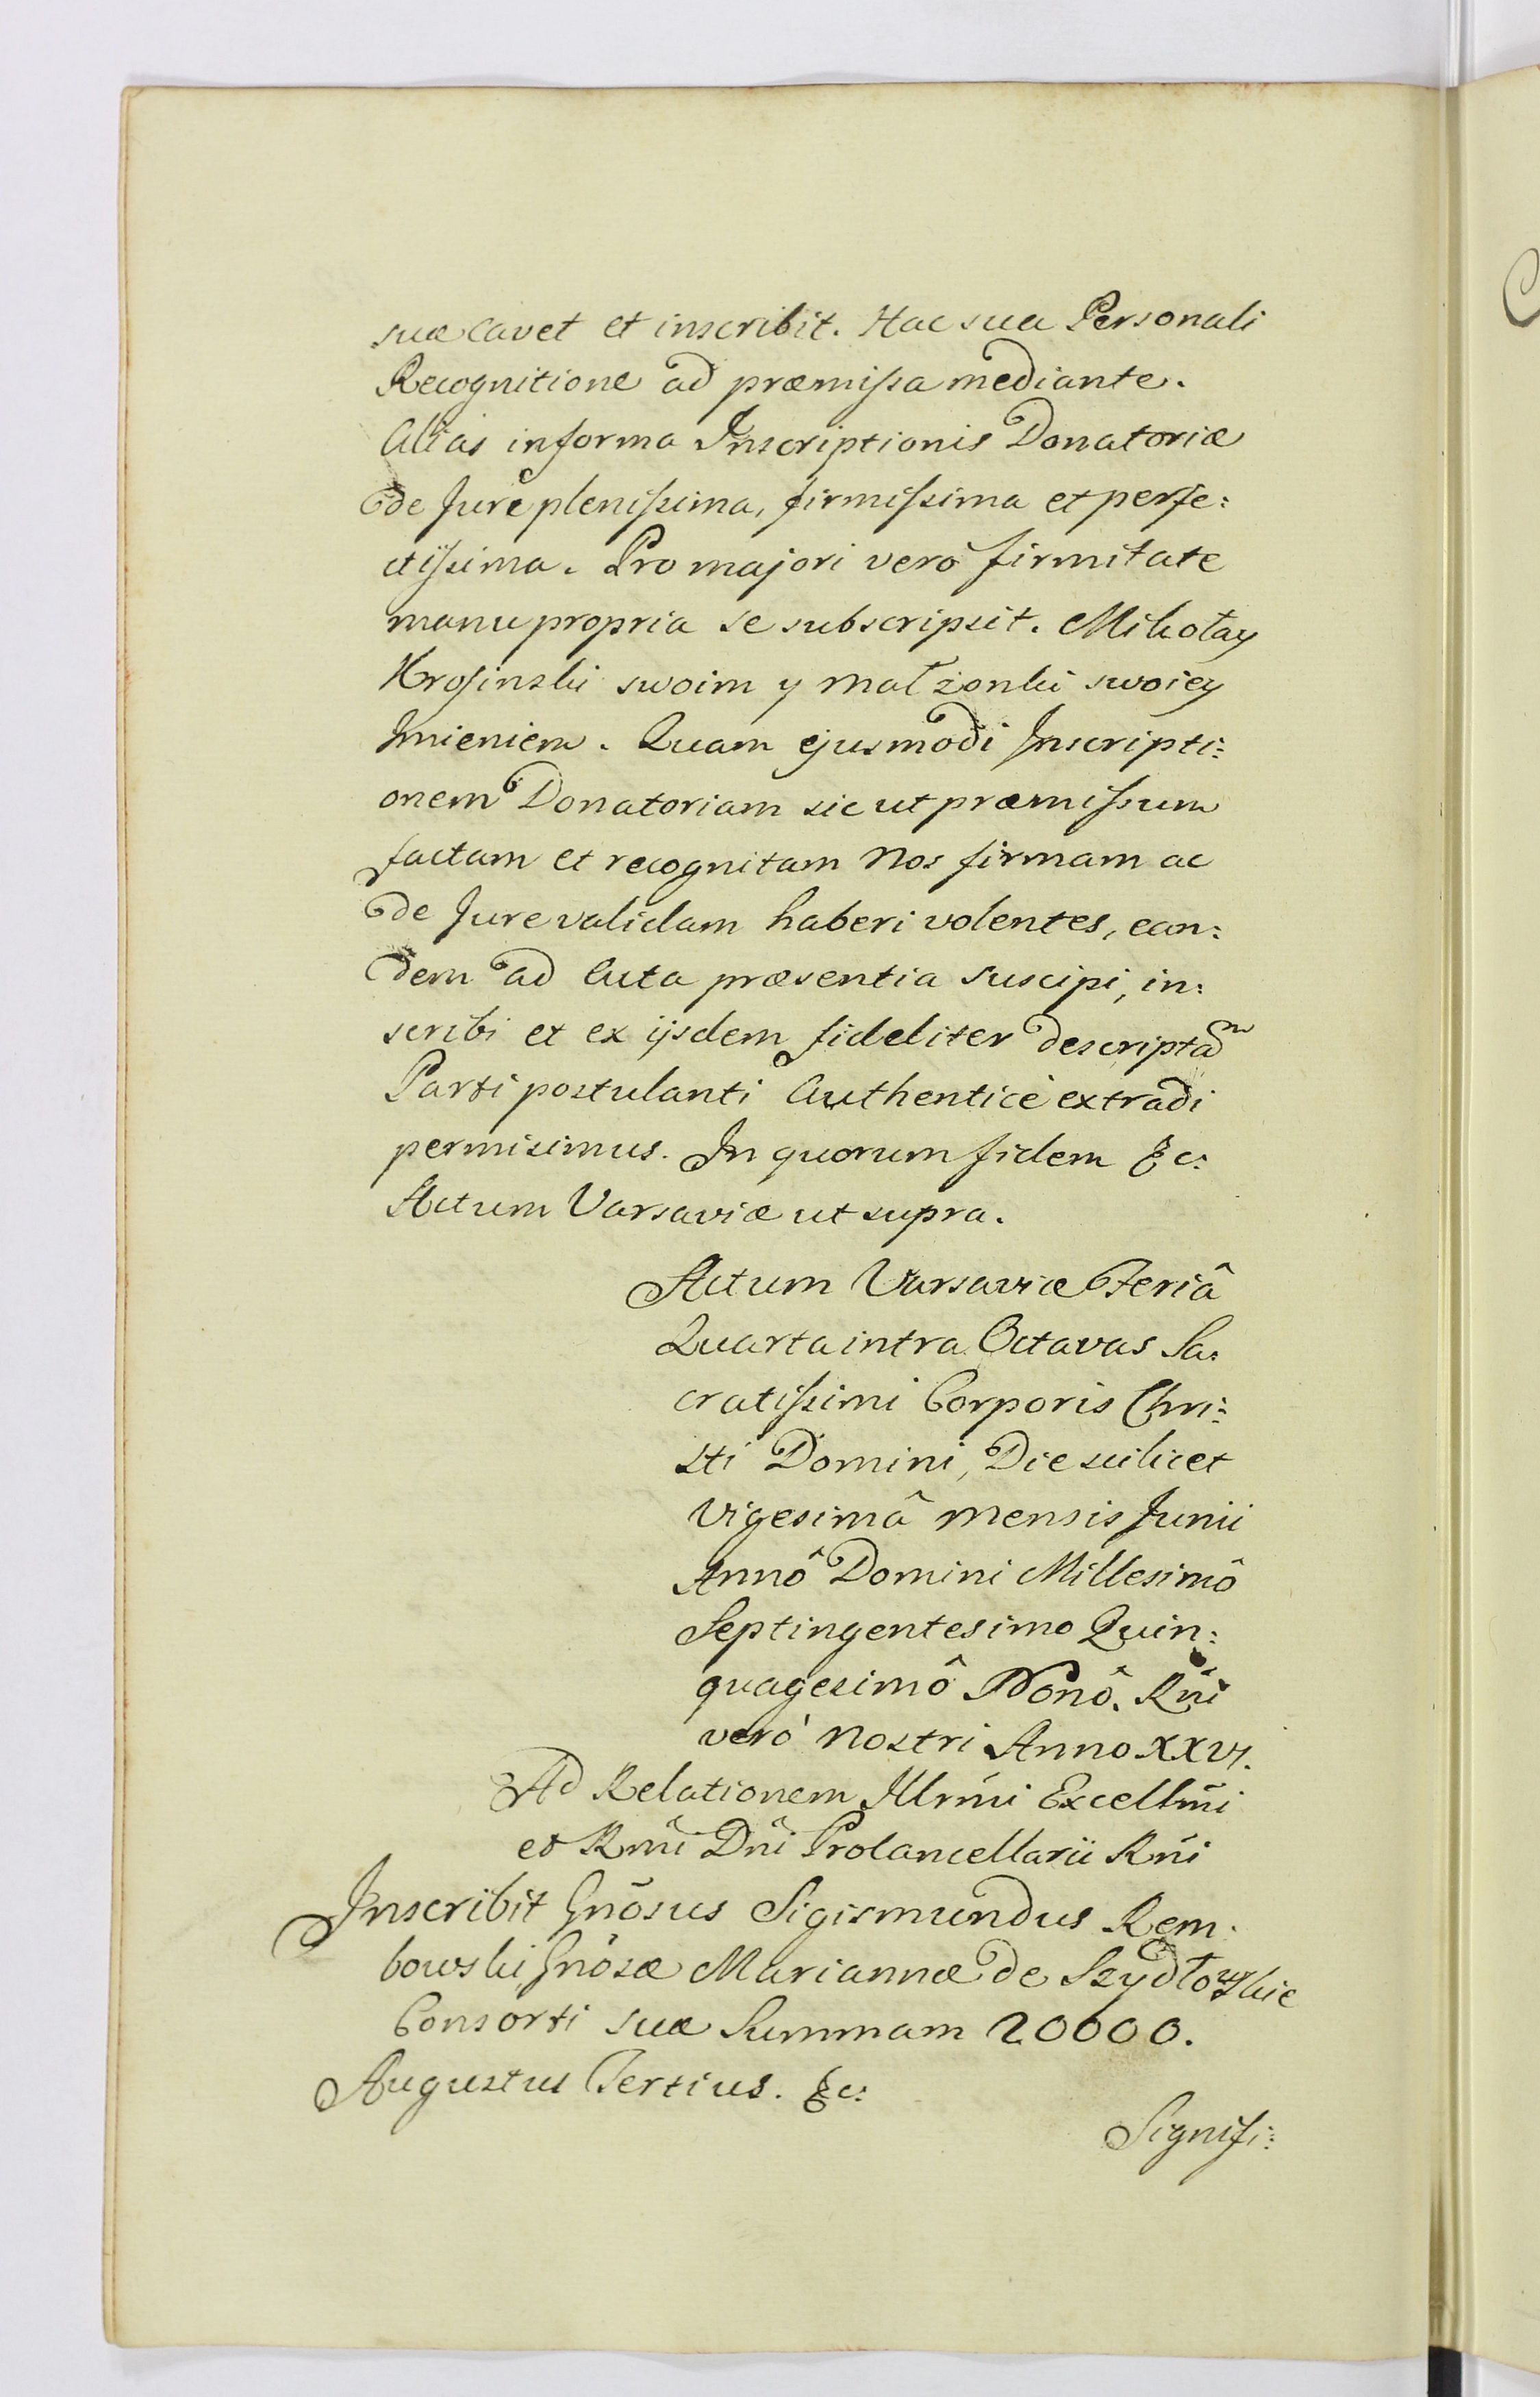 suæ cavet et inscribit. Hac sua Personali
Recognitione ad præmissa mediante.
Alias in forma Inscriptionis Donatoriæ
de Jure plenissima, firmissima et perfe:
ctissima. Pro majori vero firmitate
manu propria se subscripsit. Mikołay
Krosinski swoim y małżonki swoiey
Jmieniem. Quam ejusmodi Inscripti:
onem Donatoriam sic ut præmissum
factam et recognitam Nos firmam ac
de Jure validam haberi volentes, ean:
dem ad Acta præsentia suscipi, in:
scribi et ex ijsdem fideliter descriptam
Parti postulanti Authenticè extradi
permisimus. In quorum fidem &c:
Actum Varsaviæ ut supra.
Actum Varsaviæ Feriâ
Quarta intra Octavas Sa:
cratissimi Corporis Chri:
sti Domini, Die scilicet
Vigesimâ mensis Junii
Annô Domini Millesimô
Septingentesimo Quin:
quagesimô Nonô. Rñi
verò nostri Anno XXVI.
Ad Relationem Illrmi Excellmi
et Rmi Dñi Procancellarii Rñi
Inscribit Gnosus Sigismundus Rem:
bowski Gnosæ Mariannæ de Szydłowskie
Consorti suæ Summam 20000.
Augustus Tertius. &c:
Signifi: